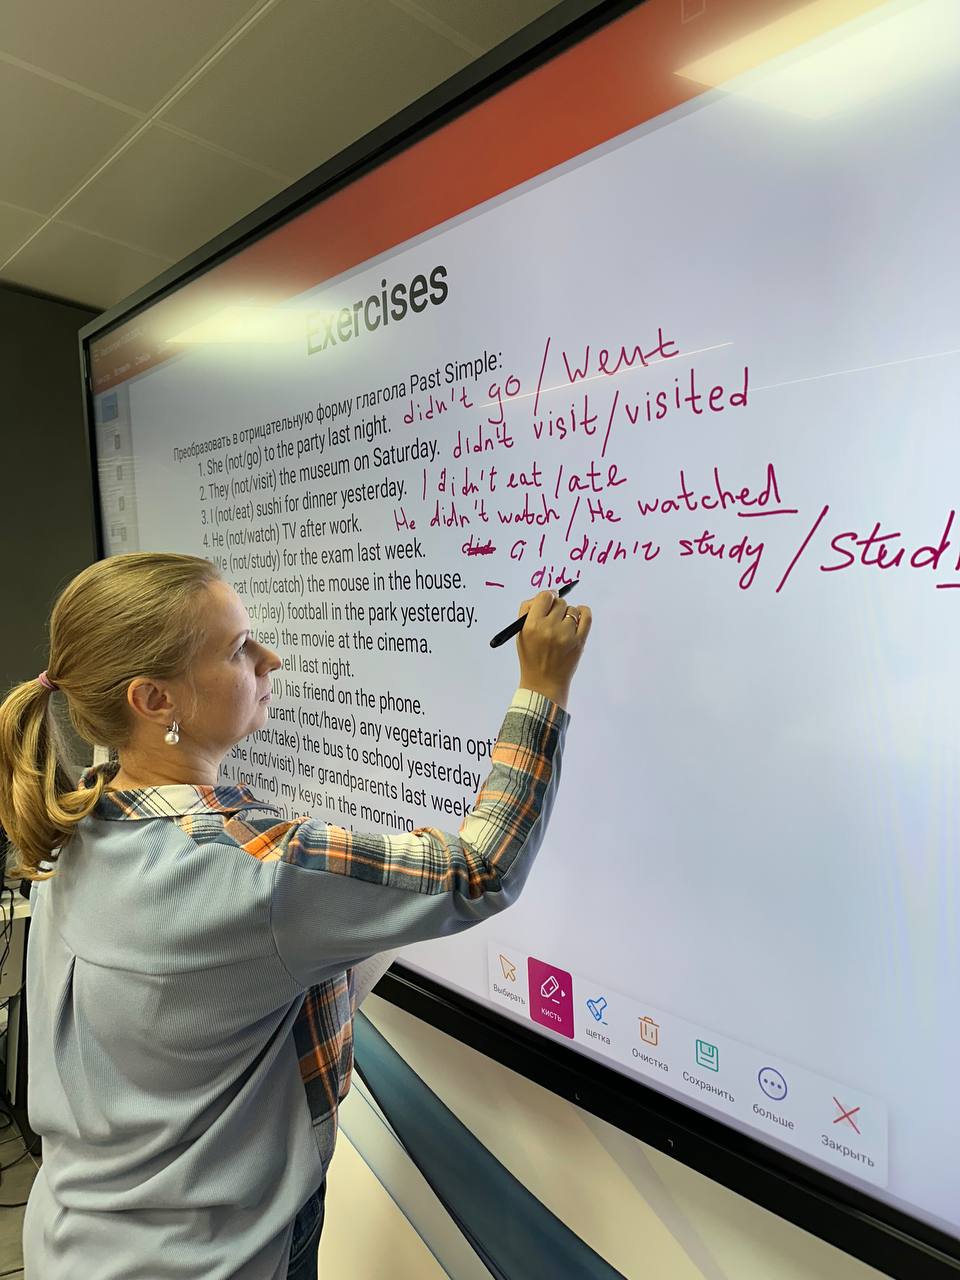 Exercises
Преобразовать в отрицательную форму глагола Past Simple:
1. She (not/go) to the party last night. didn't go / went
2. They (not/visit) the museum on Saturday. didn't visit / visited
3. I (not/eat) sushi for dinner yesterday. I didn't eat / ate
4. He (not/watch) TV after work. He didn't watch / He watched
We (not/study) for the exam last week. didn't study / Stud
cat (not/catch) the mouse in the house. – did
ot/play) football in the park yesterday.
t/see) the movie at the cinema.
well last night.
ll) his friend on the phone.
urant (not/have) any vegetarian opt
(not/take) the bus to school yesterday
She (not/visit) her grandparents last week
14. I (not/find) my keys in the morning
Выбирать
кисть
щетка
Очистка
Сохранить
больше
Закрыть